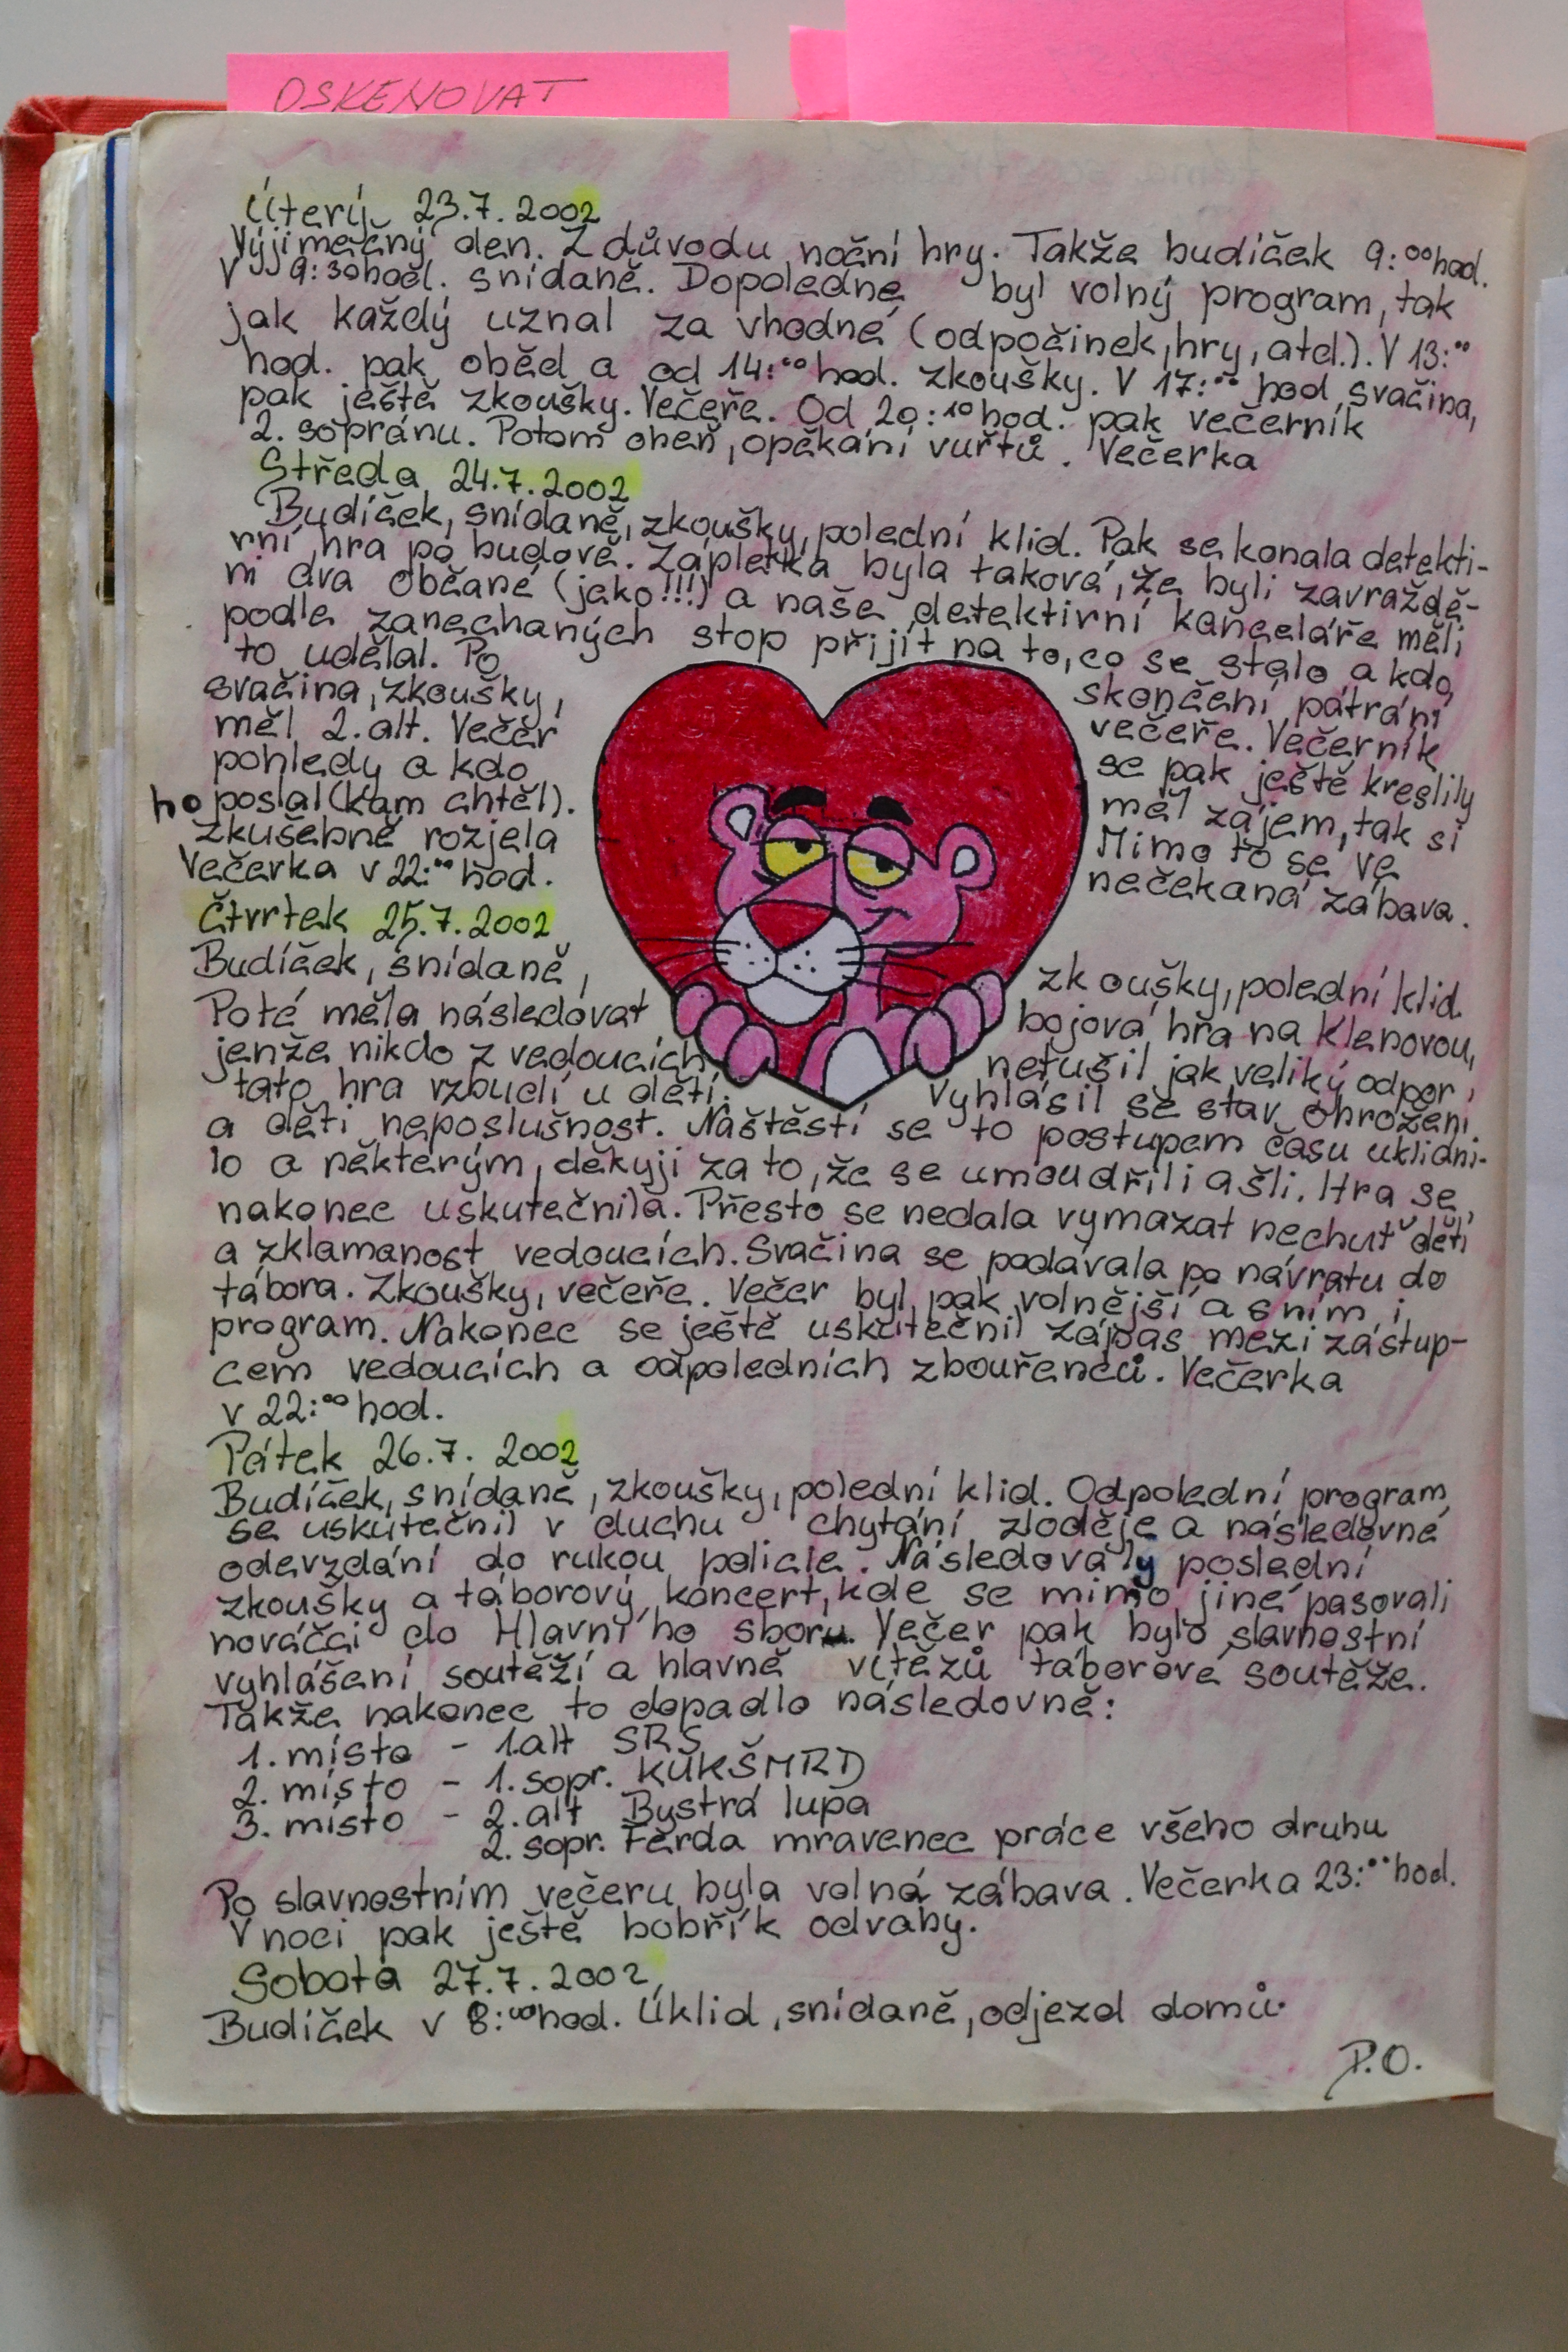 OSKENOVAT
Úterý 23.7.2002
Výjimečný den. Z důvodu noční hry. Takže budíček 9:00 hod.
V 9:30 hod. snídaně. Dopoledne byl volný program, tak
jak každý uznal za vhodné (odpočinek, hry, atd.). V 13:00
hod. pak oběd a od 14:00 hod. zkoušky. V 17:00 hod svačina,
pak ještě zkoušky. Večeře. Od 20:10 hod. pak večerník
2. sopránu. Potom oheň, opékání vuřtů. Večerka
Středa 24.7.2002
Budíček, snídaně, zkoušky, polední klid. Pak se konala detekti-
vní hra po budově. Zápletka byla taková, že byli zavraždě-
ni dva občané (jako!!!) a naše detektivní kanceláře měli
podle zanechaných stop přijít na to, co se stalo a kdo
to udělal. Po skončení pátrání
svačina, zkoušky, večeře. Večerník
měl 2. alt. Večer se pak ještě kreslily
pohledy a kdo měl zájem, tak si
ho poslal (kam chtěl). Mimo to se ve
zkušebně rozjela nečekaná zábava.
Večerka v 22:00 hod.
Čtvrtek 25.7.2002
Budíček, snídaně, zkoušky, polední klid.
Poté měla následovat bojová hra na Klenovou,
jenže nikdo z vedoucích netušil jak veliký odpor
tato hra vzbudí u dětí. Vyhlásil se stav ohrožení
a děti neposlušnost. Naštěstí se to postupem času uklidni-
lo a některým, děkuji za to, že se umoudřili a šli. Hra se
nakonec uskutečnila. Přesto se nedala vymazat nechuť dětí
a zklamanost vedoucích. Svačina se podávala po návratu do
tábora. Zkoušky, večeře. Večer byl pak volnější a s ním i
program. Nakonec se ještě uskutečnil zápas mezi zástup-
cem vedoucích a odpoledních zbouřenců. Večerka
v 22:00 hod.
Pátek 26.7. 2002
Budíček, snídaně, zkoušky, polední klid. Odpolední program
se uskutečnil v duchu chytání zloděje a následovné
odevzdání do rukou policie. Následovaly poslední
zkoušky a táborový koncert, kde se mimo jiné pasovali
nováčci do Hlavního sboru. Večer pak bylo slavnostní
vyhlášení soutěží a hlavně vítězů táborové soutěže.
Takže nakonec to dopadlo následovně:
1. místo - 1.alt SRS
2. místo - 1. sopr. KUKŠMRD
3. místo - 2. alt Bystrá lupa
2. sopr. Ferda mravenec práce všeho druhu
Po slavnostním večeru byla volná zábava. Večerka 23:00 hod.
V noci pak ještě bobřík odvahy.
Sobota 27.7.2002
Budíček v 8:00 hod. Úklid, snídaně, odjezd domů.
P.O.